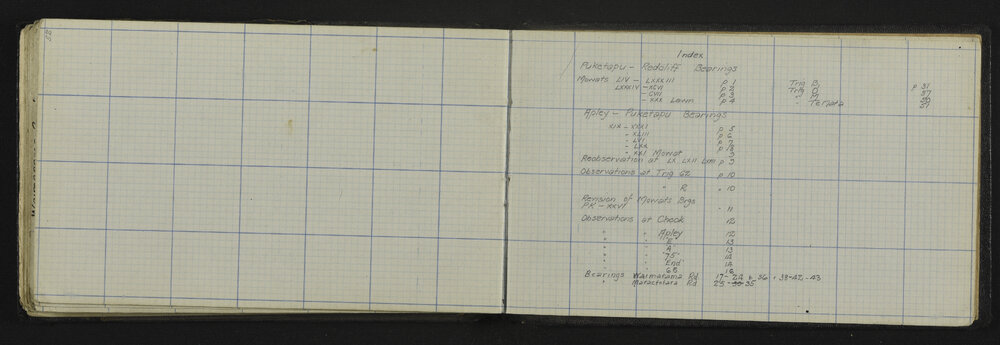 52
Index
Puketapu - Redcliff Bearings
Mowats LIV - LXXXIII p 1 Trig B p 31
LXXXIV - XCVI p 2 Trig O 37
" - CVII p 3 " M
" - XXX Lawn p 4 " Temata 27
Apley - Puketapu Bearings
XIX - XXXI p 5
" - XLIII p 6
" - LVI p 7
" - LXX p 8
" - XXI Mowat " 9
Reobservation at LX LXII LXIII p 9
Observations at Trig 62 p 10
" " R " 10
Revision of Mowats Brgs
PK - XXVI " 11
Observations at Check 12
" " Apley 12
" " "E" 13
" " "A" 13
" " "75" 14
" " "End" 14
" " 68 16
Bearings Waimarama Rd 17-24 & 36 · 38-42-43
" Maraetotara Rd 25-30-35